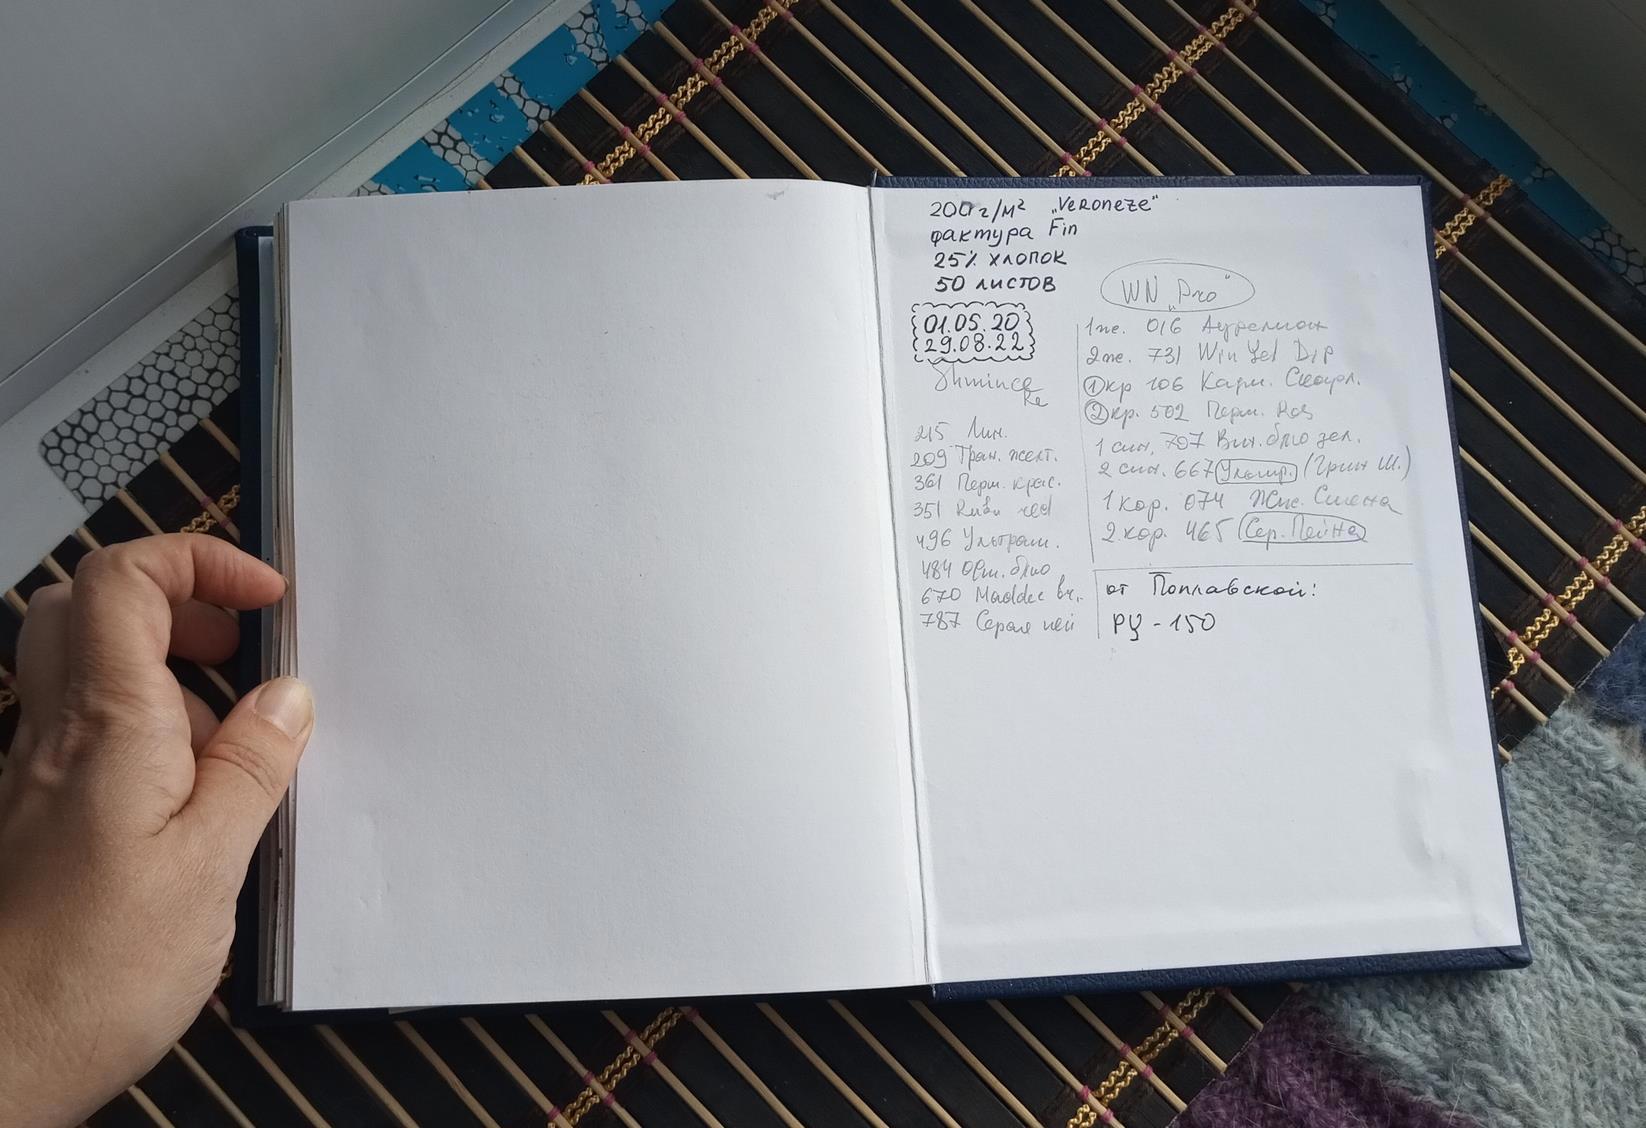 200 г/м² „Veroneze"
фактура Fin
25% хлопок
50 листов
01.05.20
29.08.22
Shmincke
215 Лим.
209 Тран. желт.
361 Перм. крас.
351 Rubi red
496 Ультрам.
484 блю
670 Madder br.
787 Серая пей
WN „Pro"
1 же. 016 Ауреолин
2 же. 731 Win Yel Dip
① кр 106 Кадм. Скарл.
② кр. 502 Перм. Ros
1 син. 707 Вин. блю зел.
2 син. 667 Ультр. (Грин Ш.)
1 кор. 074 Жж. Сиена
2 кор. 465 Сер. Пейна
от Поплавской:
РЦ - 150